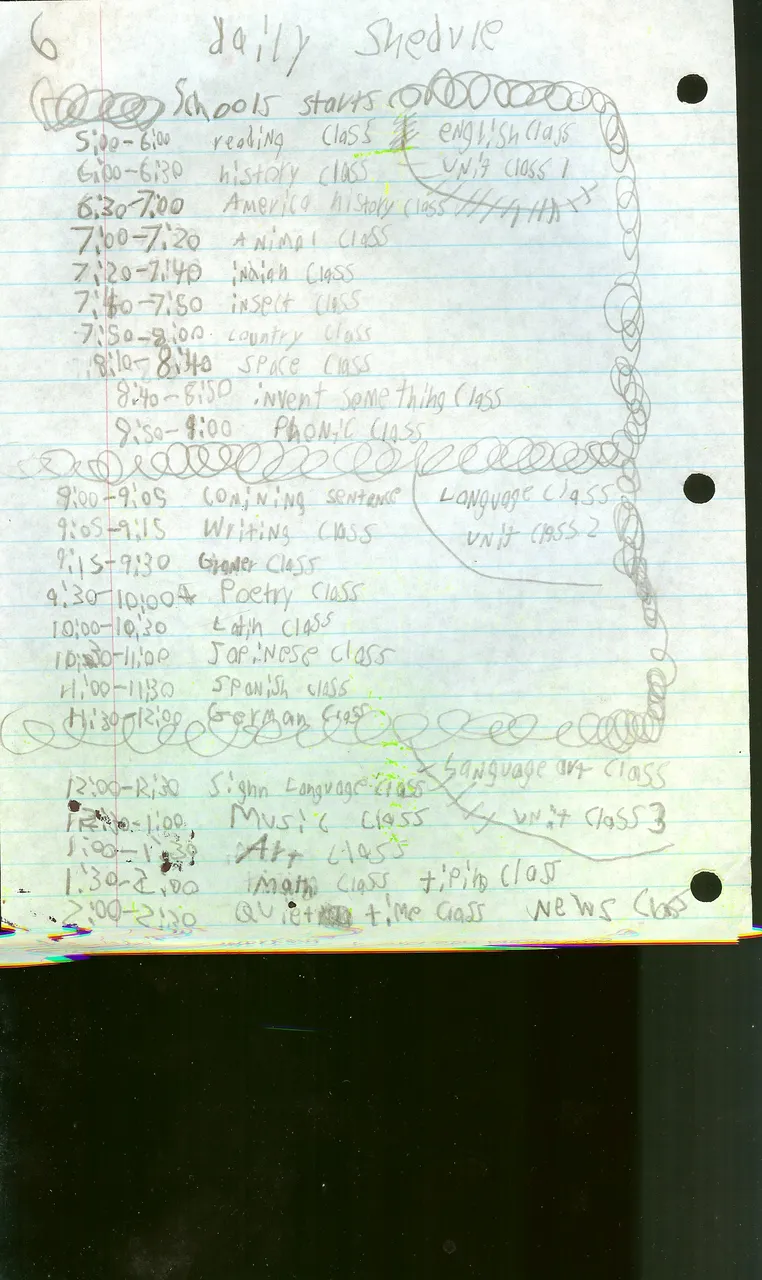 6 daily Shedule
Schools starts
5:00-6:00 reading class english class
6:00-6:30 history class unit class 1
6:30-7:00 America history class
7:00-7:20 Animal class
7:20-7:40 indian class
7:40-7:50 insect class
7:50-8:00 country class
8:10-8:40 space class
8:40-8:50 invent something class
8:50-9:00 Phonic class
9:00-9:05 sentence Language class
9:05-9:15 Writing class unit class 2
9:15-9:30 class
9:30-10:00 Poetry class
10:00-10:30 Latin class
10:30-11:00 Japinese class
11:00-11:30 spanish class
11:30-12:00 German class
language art class
12:00-12:30 Sighn Language class
1:00 Music class unit class 3
1:00- Art class
1:30-2:00 math class tipin class
2:00-2:30 Quiet time class News class